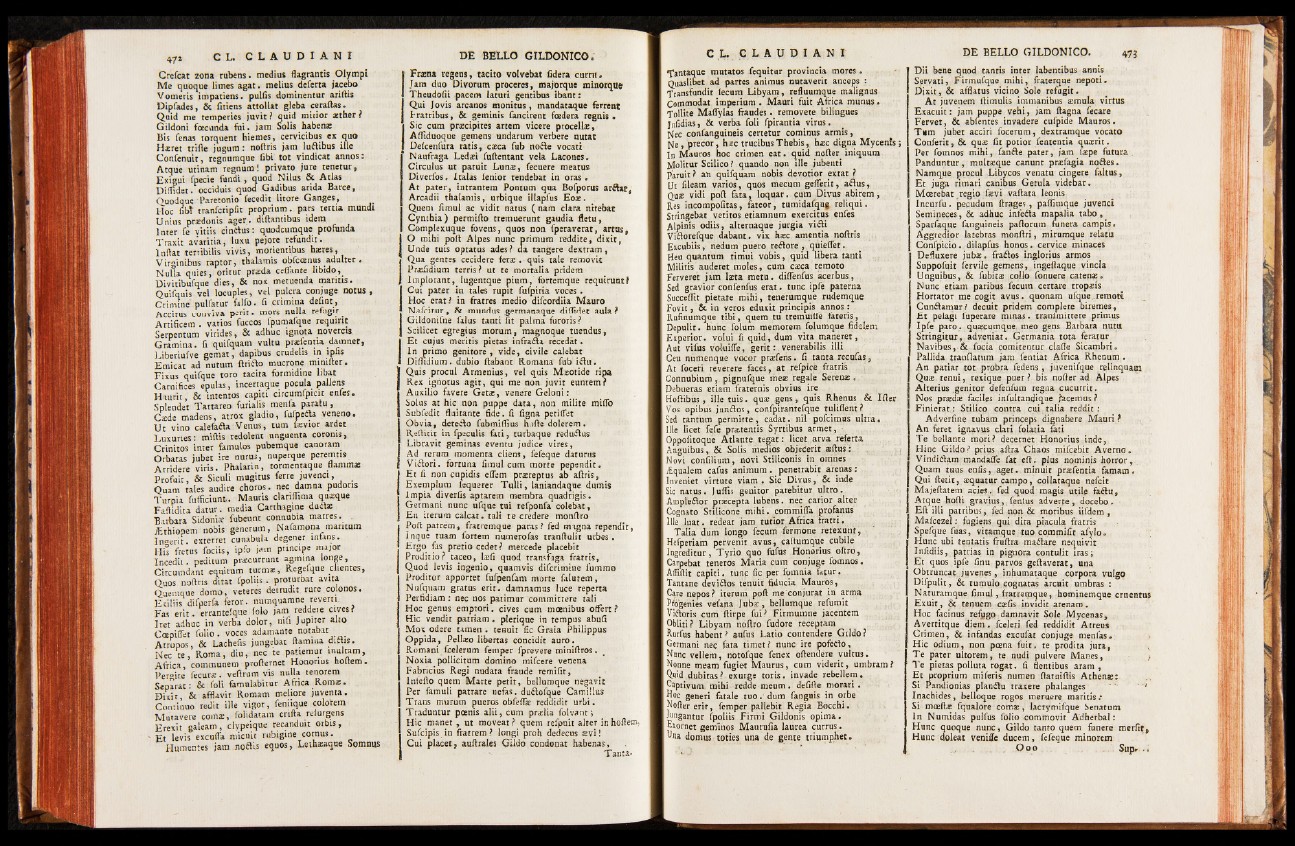 472 CL. CLAUDIANI
Crescat zona rubens. medius flagrantis Olympi
Me quoque limes agat. melius deserta jacebo
Vomeris impatiens. pulsis dominentur aristis
Dipsades, & sitiens attollat gleba cerastas.
Quid me temperies juvit? quid mitior æther?
Gildoni fœcunda fui. jam Solis habenæ
Bis senas torquent hiemes, cervicibus ex quo
Hæret triste jugum: nostris jam luctibus ille
Consenuit, regnumque sibi tot vindicat annos:
Atque utinam regnum! privato jure tenetur,
Exigui specie fundi, quod Nilus & Atlas
Dissidet. occiduis quod Gadibus arida Barce,
Quodque Parætonio secedit litore Ganges,
Hoc sibi transcripsit proprium. pars tertia mundi
Unius prædonis ager. distantibus idem
Inter se vitiis cinctus: quodcumque profunda
Traxit avaritia, luxu pejore refundit.
Instat terribilis vivis, morientibus hæres,
Virginibus raptor, thalamis obscœnus adulter.
Nulla quies, oritur præda cessante libido,
Divitibusque dies, & nox metuenda maritis.
Quisquis vel locuples, vel pulcra conjuge notus,
Crimine pulsatur falso. si crimina desint,
Accitus conviva perit. mors nulla refugit
Artificem. varios succos spumasque requirit
Serpentum virides, & adhuc ignota novercis
Gramina. si quisquam vultu præsentia damnet,
Liberiusve gemat, dapibus crudelis in ipsis
Emicat ad nutum stricto mucrone minister.
Fixus quisque toro tacita formidine libat
Carnifices epulas, incertaque pocula pallens
Haurit, & intentos capiti circumspicit enses.
Splendet Tartareo furialis mensa paratu,
Cæde madens, atrox gladio, suspecta veneno.
Ut vino calefacta Venus, tum sævior ardet
Luxuries: mistis redolent unguenta coronis,
Crinitos inter famulos pubemque canoram
Orbatas jubet ire nurus, nuperque peremtis
Arridere viris. Phalarin, tormentaque flammæ
Profuit, & Siculi mugitus ferre juvenci,
Quam tales audire choros. nec damna pudoris
Turpia sufficiunt. Mauris clarissima quæque
Fastidita datur. media Carthagine ductæ
Barbara Sidoniæ subeunt connubia matres.
Æthiopem nobis generum, Nasamona maritum
Ingerit. exterret cunabula degener infans.
His fretus sociis, ipso jam principe major
Incedit. peditum præcurrunt agmina longe,
Circumdant equitum turmæ, Regesque clientes,
Quos nostris ditat spoliis. proturbat avita
Quemque domo, veteres detrudit rure colonos.
Exiliis dispersa feror. numquamne reverti
Fas erit. errantesque solo jam reddere cives?
Iret adhuc in verba dolor, nisi Jupiter alto
Cœpisset solio. voces adamante notabat
Atropos, & Lachesis jungebat stamina dictis.
Nec te, Roma, diu, nec te patiemur inultam,
Africa, communem prosternet Honorius hostem.
Pergite securæ. vestrum vis nulla tenorem
Separat: & soli famulabitur Africa Romæ.
Dixit, & afflavit Romam meliore juventa.
Continuo redit ille vigor, seniique colorem
Mutavere comæ, solidatam crista resurgens
Erexit galeam, clypeique recanduit orbis,
Et levis excussa micuit rubigine cornus.
Humentes jam noctis equos, Lethæaque Somnus
DE BELLO GILDONICO.
Fræna regens, tacito volvebat sidera curru.
Jam duo Divorum proceres, majorque minorque
Theudosii pacem laturi gentibus ibant:
Qui Jovis arcanos monitus, mandataque ferrent
Fratribus, & geminis sancirent fœdera regnis.
Sic cum præcipites artem vicere procellæ,
Assiduoque gemens undarum verbere nutat
Descensura ratis, cæca sub nocte vocati
Naufraga Ledæi sustentant vela Lacones.
Circulus ut patuit Lunæ, secuere meatus
Diversos. Italas senior tendebat in oras.
At pater, intrantem Pontum qua Bosporus arctat,
Arcadii thalamis, urbique illapsus Eoæ.
Quem simul ac vidit natus (nam clara nitebat
Cynthia) permisto tremuerunt gaudia fletu,
Complexuque fovens, quos non speraverat, artus,
O mihi post Alpes nunc primum reddite, dixit,
Unde tuis optatus ades? da tangere dextram,
Qua gentes cecidere feræ. quis tale removit
Præsidium terris? ut te mortalia pridem
Implorant, lugentque pium, fortemque requirunt?
Cui pater in tales rupit suspiria voces.
Hoc erat? in fratres medio discordia Mauro
Nascitur, & mundus germanaque dissidet aula?
Gildonisne salus tanti sit palma furoris?
Scilicet egregius morum, magnoque tuendus,
Et cujus meritis pietas infracta recedat.
In primo genitore, vide, civile calebat
Dissidium. dubio stabant Romana sub ictu.
Quis procul Armenius, vel quis Mæotide ripa
Rex ignotus agit, qui me non juvit euntem?
Auxilio favere Getæ, venere Geloni:
Solus at hic non puppe data, non milite misso
Subsedit fluitante fide. si signa petisset
Obvia, detecto submissius hoste dolerem.
Restitit in speculis fati, turbaque reductus
Libravit geminas eventu judice vires,
Ad rerum momenta cliens, sefeque daturus
Victori. fortuna simul cum morte pependit.
Et si non cupidis essem præreptus ab astris,
Exemplum sequerer Tulli, laniandaque dumis
Impia diversis aptarem membra quadrigis.
Germani nunc usque tui responsa colebat,
En iterum calcat. tali te credere monstro
Post patrem, fratremque paras? sed magna rependit,
Inque tuam sortem numerosas transtulit urbes.
Ergo fas pretio cedet? mercede placebit
Proditio? taceo, læsi quod transfuga fratris,
Quod levis ingenio, quamvis discrimine summo
Proditor apportet suspensam morte salutem,
Nusquam gratus erit. damnamus luce reperta
Perfidiam: nec nos patimur committere tali
Hoc genus emptori. cives cum mœnibus offert?
Hic vendit patriam. plerique in tempus abusi
Mox odere tamen. tenuit sic Graia Philippus
Oppida, Pellæo libertas concidit auro.
Romani scelerum semper sprevere ministros.
Noxia pollicitum domino miscere venena
Fabricius Regi nudata fraude remisit,
Infesto quem Marte petit, bellumque negavit
Per famuli patrare nefas. ductosque Camillus
Trans murum pueros obsessæ reddidit urbi.
Traduntur pœnis alii, cum prælia solvant;
Hic manet, ut moveat? quem respuit alter in hostem,
Suscipis in fratrem? longi proh dedecus ævi!
Cui placet, australes Gildo condonat habenas,
Tanta-
CL. CLAUDIANI
Tantaque mutatos sequitur provincia mores.
Quaslibet ad partes animus nutaverit anceps:
Transfundit secum Libyam, refluumque malignus
Commodat imperium. Mauri fuit Africa munus.
Tollite Massylas fraudes. removete bilingues
Insidias, & verba soli spirantia virus.
Nec consanguineis certetur cominus armis,
Ne, precor, hæc trucibus Thebis, hæc digna Mycenis;
In Mauros hoc crimen eat. quid noster iniquum
Molitur Stilico? quando non ille jubenti
Paruit? an quisquam nobis devotior extat?
Ut sileam varios, quos mecum gesserit, actus,
Quæ vidi post fata, loquar. cum Divus abirem,
Res incompositas, fateor, tumidasque reliqui.
Stringebat vetitos etiamnum exercitus enses
Alpinis odiis, alternaque jurgia victi
Victoresque dabant. vix hæc amentia nostris
Excubiis, nedum puero rectore, quiesset.
Heu quantum timui vobis, quid libera tanti
Militis auderet moles, cum cæca remoto
Ferveret jam læta metu. dissensus acerbus,
Sed gravior consensus erat. tunc ipse paterna
Successit pietate mihi, tenerumque rudemque
Fovit, & in veros eduxit principis annos:
Rufinumque tibi, quem tu tremuisse fateris,
Depulit. hunc solum memorem solumque fidelem
Experior. volui si quid, dum vita maneret,
Aut visus voluisse, gerit: venerabilis illi
Ceu numenque vocor præsens. si tanta recusas;
At soceri reverere faces, at respice fratris
Connubium, pignusque meæ regale Serenæ.
Debueras etiam fraternis obvius ire
Hostibus, ille tuis. quæ gens, quis Rhenus & Ister
Vos opibus junctos, conspirantesque tulissent?
Sed tantum permitte, cadat. nil poscimus ultra.
Ille licet sese prætentis Syrtibus armet,
Oppositoque Atlante tegat: licet arva referta
Anguibus, & Solis medios objecerit æstus:
Novi consilium, novi Stiliconis in omnes
Æqualem casus animum. penetrabit arenas:
Inveniet virtute viam. Sic Divus, & inde
Sic natus. Jussis genitor patebitur ultro.
Amplector præcepta lubens. nec carior alter
Cognato Stilicone mihi. commissa profanus
Ille luat. redeat jam tutior Africa fratri.
Talia dum longo secum sermone retexunt,
Hesperiam pervenit avus, castumque cubile
Ingreditur, Tyrio quo fusus Honorius ostro,
Carpebat teneros Maria cum conjuge somnos.
Assistit capiti. tunc sic per somnia fatur.
Tantane devictos tenuit fiducia Mauros,
Care nepos? iterum post me conjurat in arma
Progenies vesana Jubæ, bellumque resumit
Victoris cum stirpe sui? Firmumne jacentem
Obliti? Libyam nostro sudore receptam
Rursus habent? ausus Latio contendere Gildo?
Germani nec fata timet? nunc ire profecto,
Nunc vellem, notosque senex ostendere vultus.
Nonne meam fugiet Maurus, cum viderit, umbram?
Quid dubitas? exurge toris. invade rebellem.
Captivum mihi redde meum. desiste morari.
Hoc generi fatale tuo. dum sanguis in orbe
Noster erit, semper pallebit Regia Bocchi.
Jungantur spoliis Firmi Gildonis opima.
Exornet geminos Maurusia laurea currus.
Una domus toties una de gente triumphet.
DE BELLO GILDONICO. 473
Dii bene quod tantis inter labentibus annis
Servati, Firmusque mihi, fraterque nepoti.
Dixit, & afflatus vicino Sole refugit.
At juvenem stimulis immanibus æmula virtus
Exacuit: jam puppe vehi, jam stagna secare
Fervet, & absentes invadere cuspide Mauros.
Tum jubet acciri socerum, dextramque vocato
Conserit, & quæ sit potior sententia quærit.
Per somnos mihi, sancte pater, jam sæpe futura
Panduntur, multæque canunt præsagia noctes.
Namque procul Libycos venatu cingere saltus,
Et juga rimari canibus Getula videbar.
Mœrebat regio sævi vastata leonis
Incursu. pecudum strages, passimque juvenci
Semineces, & adhuc infecta mapalia tabo,
Sparsaque sanguineis pastorum funera campis.
Aggredior latebras monstri, mirumque relatu
Conspicio. dilapsus honos. cervice minaces
Defluxere jubæ. fractos inglorius armos
Supposuit servile gemens, ingestaque vincla
Unguibus, & subitæ collo sonuere catenæ.
Nunc etiam paribus secum certare tropæis
Hortator me cogit avus. quonam usque remoti
Cunctamur? decuit pridem complere biremes,
Et pelagi superare minas. transmittere primus
Ipse paro. quæcumque meo gens Barbara nutu
Stringitur, adveniat. Germania tota feratur
Navibus, & socia comitentur classe Sicambri.
Pallida translatum jam sentiat Africa Rhenum.
An patiar tot probra sedens, juvenisque relinquam
Quæ tenui, rexique puer? bis noster ad Alpes
Alterius genitor defensum regna cucurrit.
Nos prædæ faciles insultandique jacemus?
Finierat: Stilico contra cui talia reddit:
Adversine tubam princeps dignabere Mauri?
An feret ignavus clari solatia fati
Te bellante mori? decernet Honorius inde,
Hinc Gildo? prius astra Chaos miscebit Averno.
Vindictam mandasse sat est. plus nominis horror,
Quam tuus ensis, aget. minuit præsentia famam.
Qui stetit, æquatur campo, collataque nescit
Majestatem acies. sed quod magis utile factu,
Atque hosti gravius, sensus adverte, docebo.
Est illi patribus, sed non & moribus iisdem,
Mascezel: fugiens qui dira piacula fratris
Spesque suas, vitamque tuo commisit asylo.
Hunc ubi tentatis frustra mactare nequivit
Insidiis, patrias in pignora contulit iras;
Et quos ipse sinu parvos gestaverat, una
Obtruncat juvenes, inhumataque corpora vulgo
Dispulit, & tumulo cognatas arcuit umbras:
Naturamque simul, fratremque, hominemque cruentus
Exuit, & tenuem cæsis invidit arenam.
Hoc facinus refugo damnavit Sole Mycenas,
Avertitque diem. sceleri sed reddidit Atreus
Crimen, & infandas excusat conjuge mensas.
Hic odium, non pœna fuit. te prodita jura,
Te pater ultorem, te nudi pulvere Manes,
Te pietas polluta rogat. si flentibus aram,
Et proprium miseris numen statuistis Athenæ:
Si Pandionias planctu traxere phalanges
Inachides, belloque rogos meruere maritis:
Si mœstæ squalore comæ, lacrymisque Senatum
In Numidas pulsus solio commovit Adherbal:
Hunc quoque nunc, Gildo tanto quem funere mersit,
Hunc doleat venisse ducem, sefeque minorem
Ooo Sup-